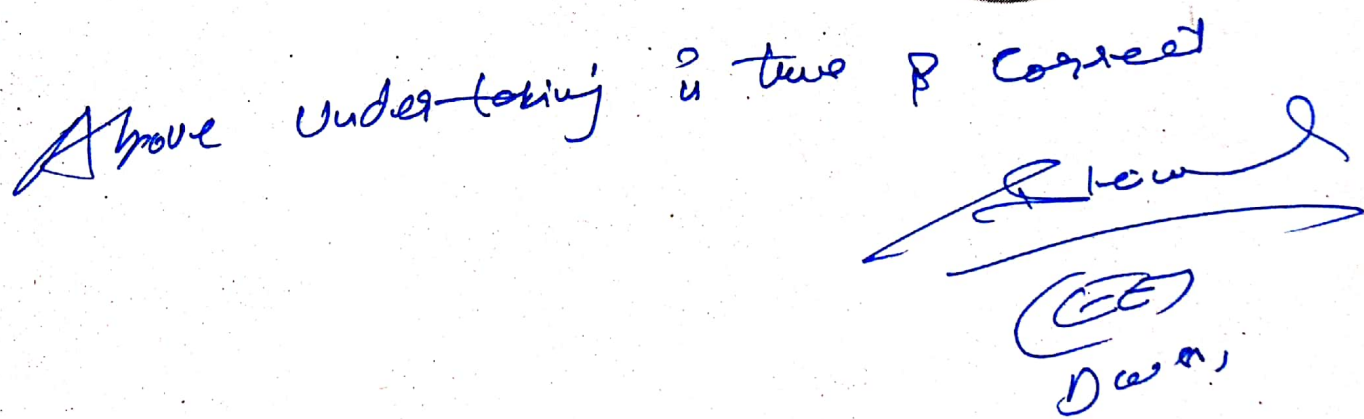 Above undertaking is true & correct
(EE)